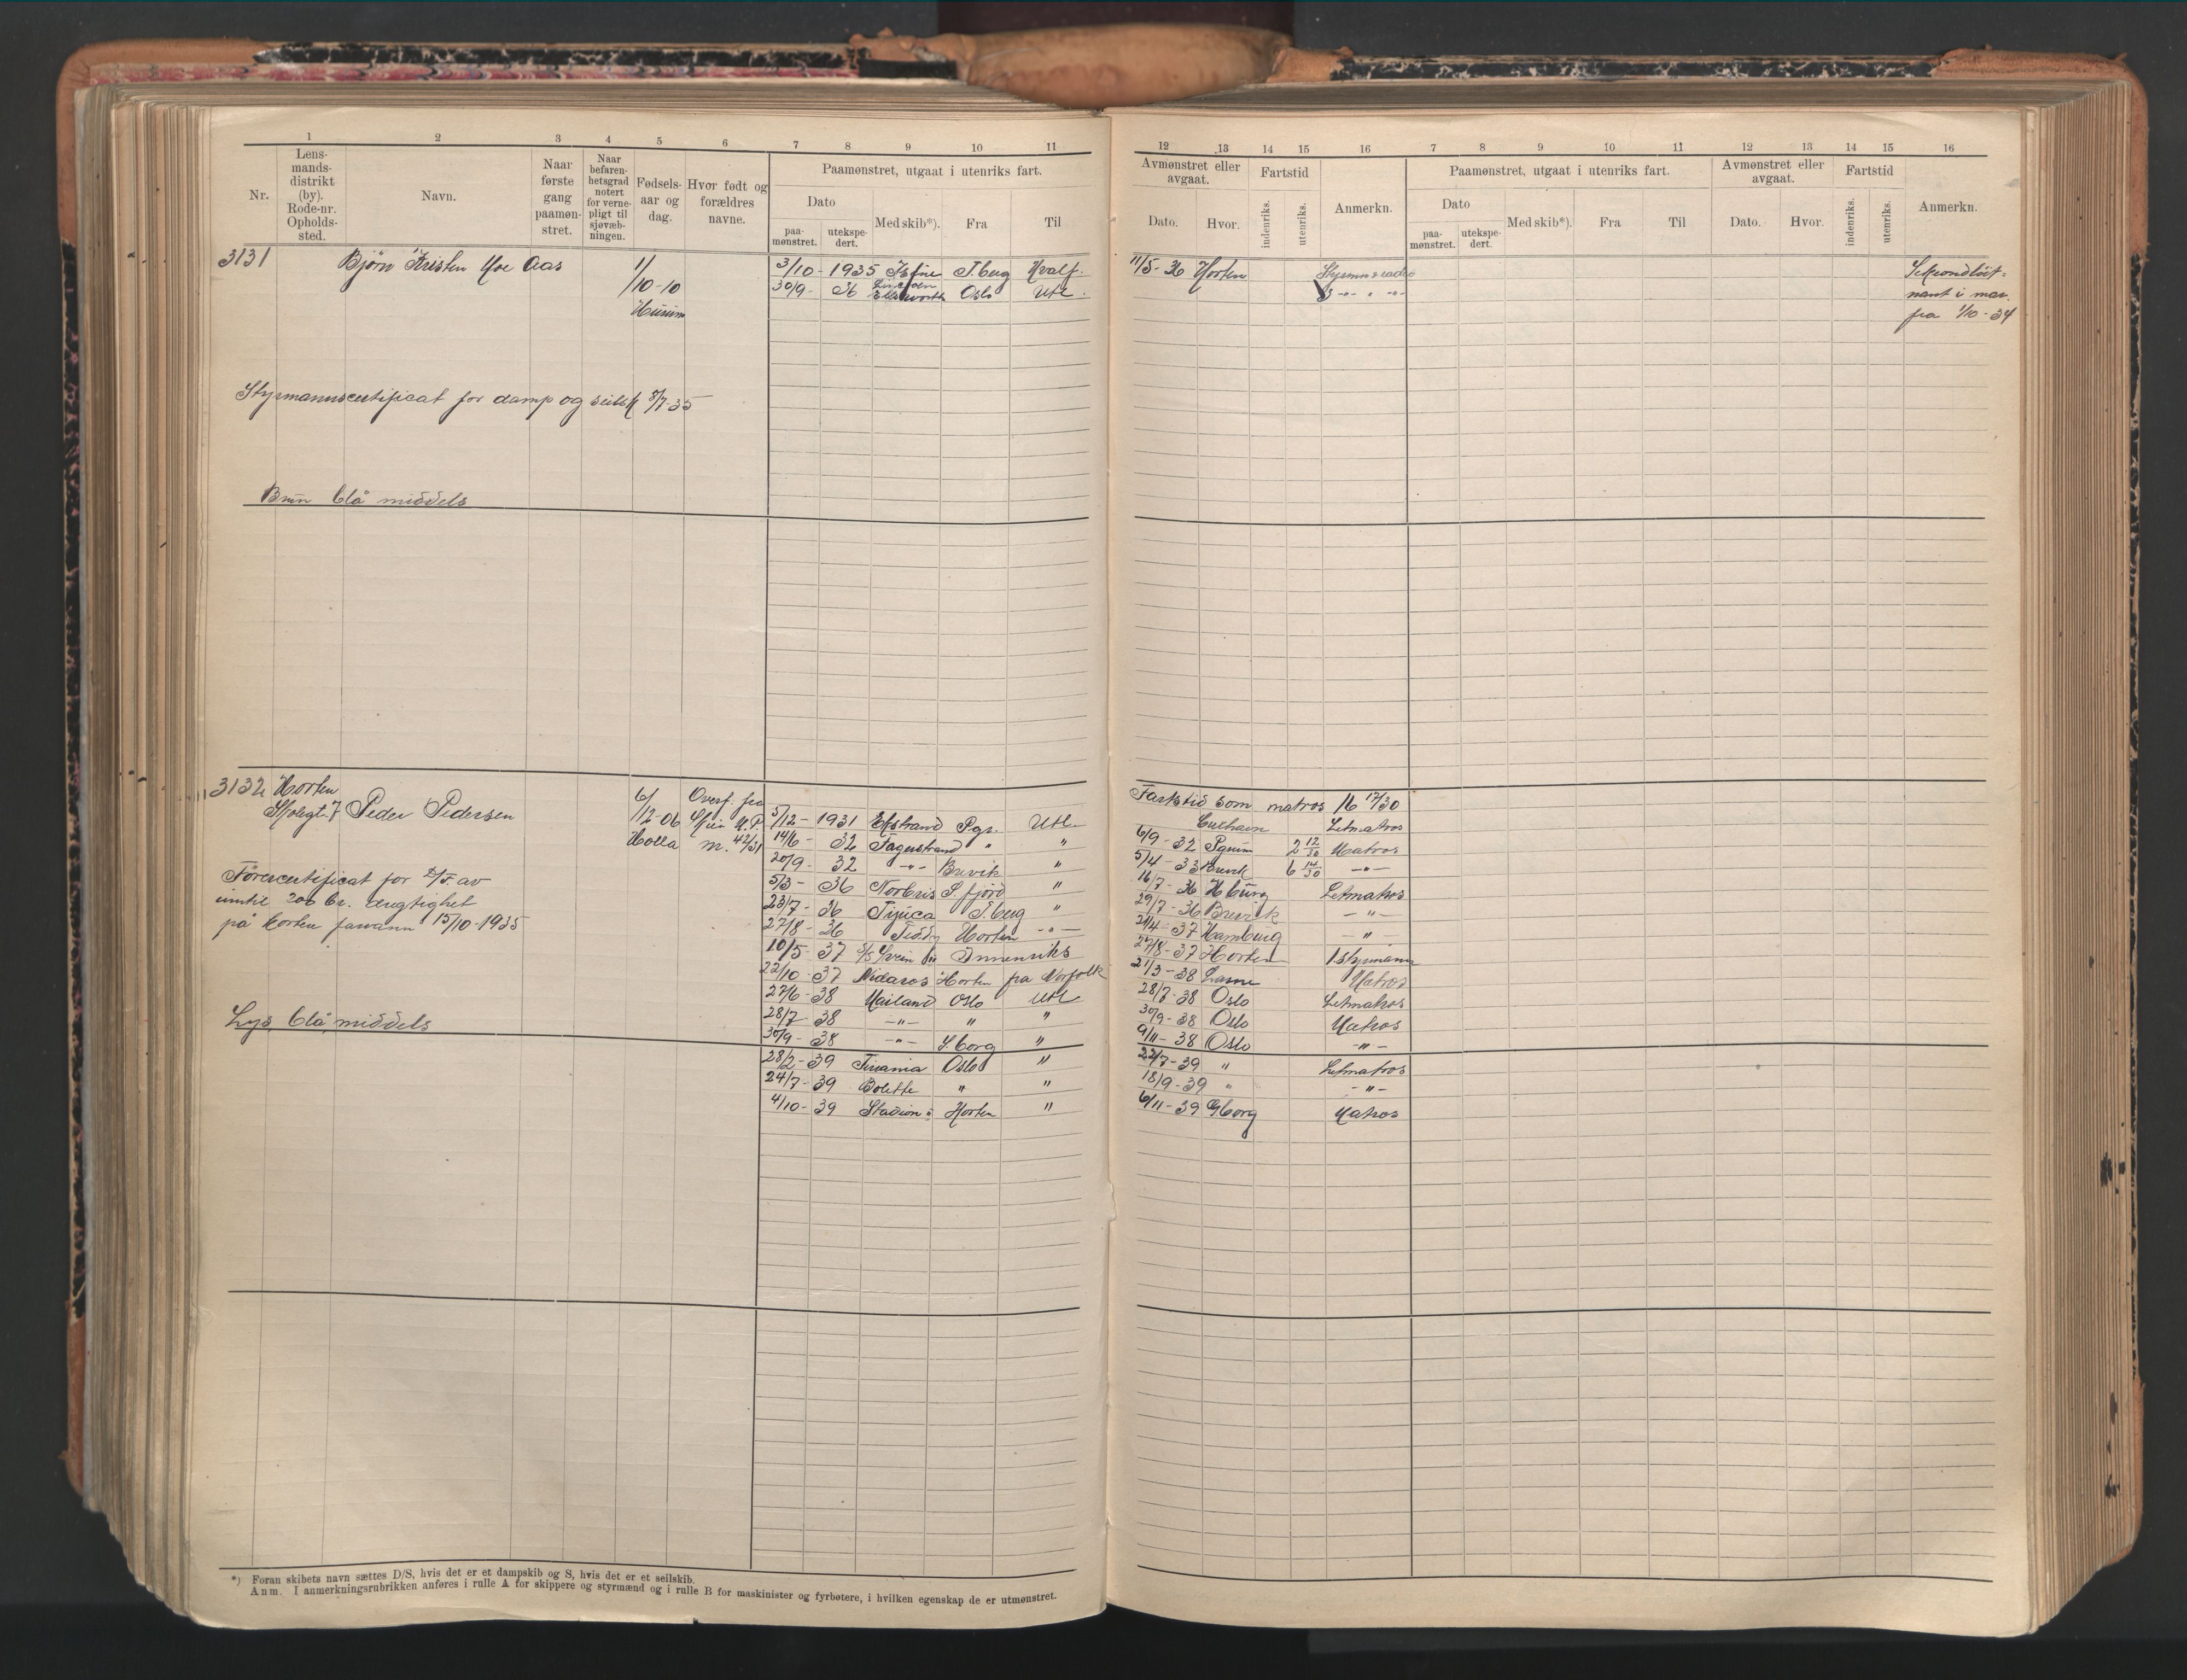 1 2 3 4 5 6 7 8 9 10 11
Nr.
Lens-
mands-
distrikt
(by).
Rode-nr.
Opholds-
sted.
Navn.
Naar
første
gang
paamøn-
stret.
Naar
befaren-
hetsgrad
notert
for verne-
pligt til
sjøvæb-
ningen.
Fødsels-
aar og
dag.
Hvor født og
forældres
navne.
Paamønstret, utgaat i utenriks fart.
Dato
paa-
mønstret.
utekspe-
dert.
Med skib*).
Fra
Til
3131 Bjørn Kristen Hoe Aas
1/
/10-10
Hurum
3/10- 1935 Isfine T.berg Hvalf.
30/9- 36 Ellsworth Oslo Utl.
Styrmannscertificat for damp og seilsk 8/7-35
Brun blå middels
3132 Horten
Skolegt. 7 Peder Pedersen
6/
/12-06
Holla
Overf. fra
m. 42/31
5/12- 1931 Ekstrand Pgr. Utl.
14/6- 32 Fagerstrand " "
20/9- 32 -"- Brevik "
5/3- 36 Norbris S fjord "
23/7- 36 Tijuca T.berg "
27/8- 36 Teddy Horten -"-
10/5- 37 Innenriks
22/10- 37 Nidaros Horten fra Norfolk
27/6- 38 Mailand Oslo Utl
28/7- 38 -"- " "
30/9- 38 -"- S.borg "
28/2- 39 Titania Oslo "
24/7- 39 Bolette " "
4/10- 39 Stadion Horten "
Førercertificat for av
inntil 200 br. dregtighet
på Horten farvann 15/10-1935
Lys, blå, middels
*) Foran skibets navn sættes D/S, hvis det er et dampskib og S, hvis det er et seilskib.
Anm. I anmerkningsrubrikken anføres i rulle A for skippere og styrmænd og i rulle B for maskinister og fyrbøtere, i hvilken egenskap de er utmønstret.
12 13 14 15 16 7 8 9 10 11 12 13 14 15 16
Avmønstret eller
avgaat.
Dato.
Hvor.
Fartstid
indenriks.
utenriks.
Anmerkn.
Paamønstret, utgaat i utenriks fart.
Dato
paa-
mønstret.
utekspe-
dert.
Med skib*).
Fra
Til
Avmønstret eller
avgaat.
Dato.
Hvor.
Fartstid
indenriks.
utenriks.
Anmerkn.
11/5-36 Horten
Sekondløit=
nant i mar.
fra 1/10-34
Fartstid som matros 16 17/30
Letmatros
6/9-32 2 12/30 Matros
5/4-33 Brevik 6 14/30 -"-
16/7-36 H.burg Letmatros
29/7-36 Brevik -"-
21/4-37 Hamburg -"-
27/8-37 Horten 1 styrmann
21/3-38 Matros
28/7-38 Oslo Letmatros
30/9-38 Oslo Matros
9/11-38 Oslo -"-
22/7-39 " Letmatros
18/9-39 " -"-
6/11-39 Gborg Matros